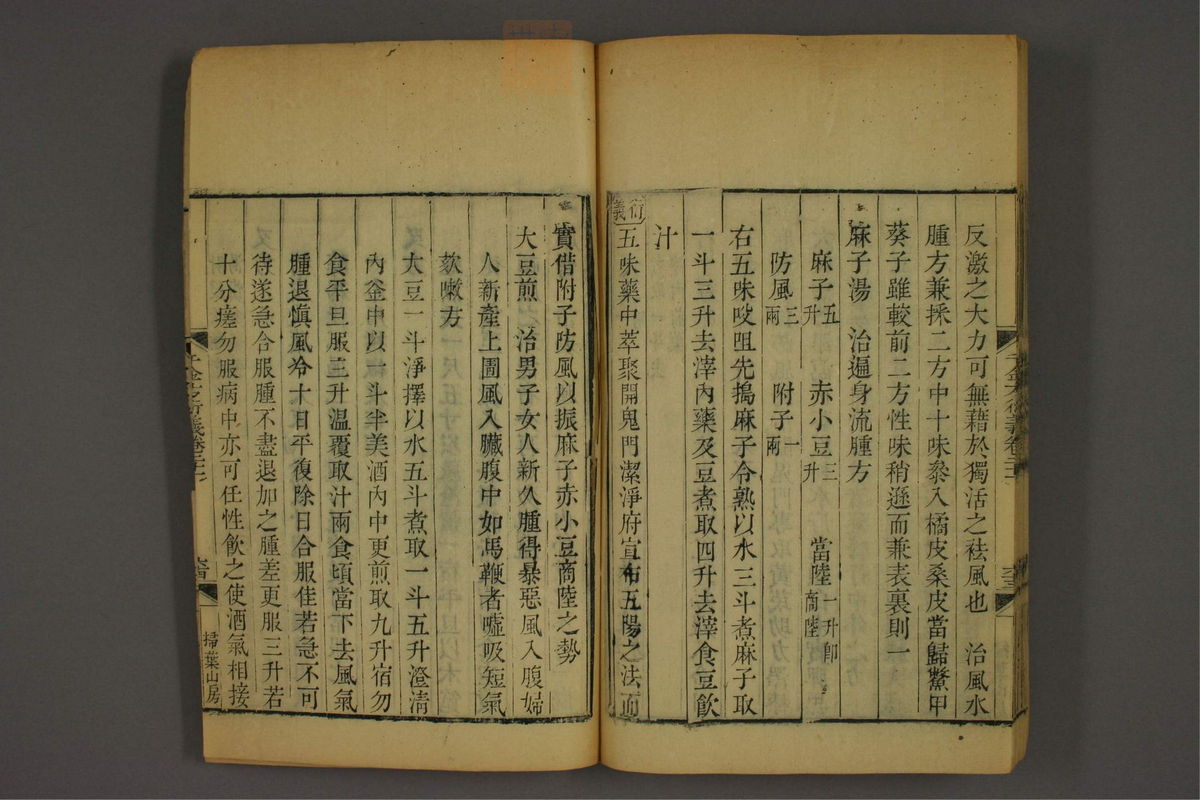 反激之大力可無藉於獨活之祛風也　治風水
腫方兼採二方中十味黍入橘皮桑皮當歸鱉甲
葵子雖較前二方性味稍遜而兼表裏則一
麻子湯　治遍身流腫方
麻子五升　赤小豆三升　當陸一升即商陸
防風三兩　附子一兩
右五味㕮咀先搗麻子令熟以水三斗煮麻子取
一斗三升去滓內藥及豆煮取四升去滓食豆飲
汁
衍義五味藥中萃聚開鬼門潔淨府宣布五陽之法而
實借附子防風以振麻子赤小豆商陸之勢
大豆煎　治男子女人新久腫得暴惡風入腹婦
人新產上圊風入臟腹中如馬鞭者噓吸短氣
欬嗽方
大豆一斗淨擇以水五斗煮取一斗五升澄清
內釜中以一斗半美酒內中更煎取九升宿勿
食平旦服三升溫覆取汗兩食頃當下去風氣
腫退慎風冷十日平復除日合服佳若急不可
待遂急合服腫不盡退加之腫差更服三升若
十分瘥勿服病中亦可任性飲之使酒氣相接
千金方衍義卷二十一
掃葉山房